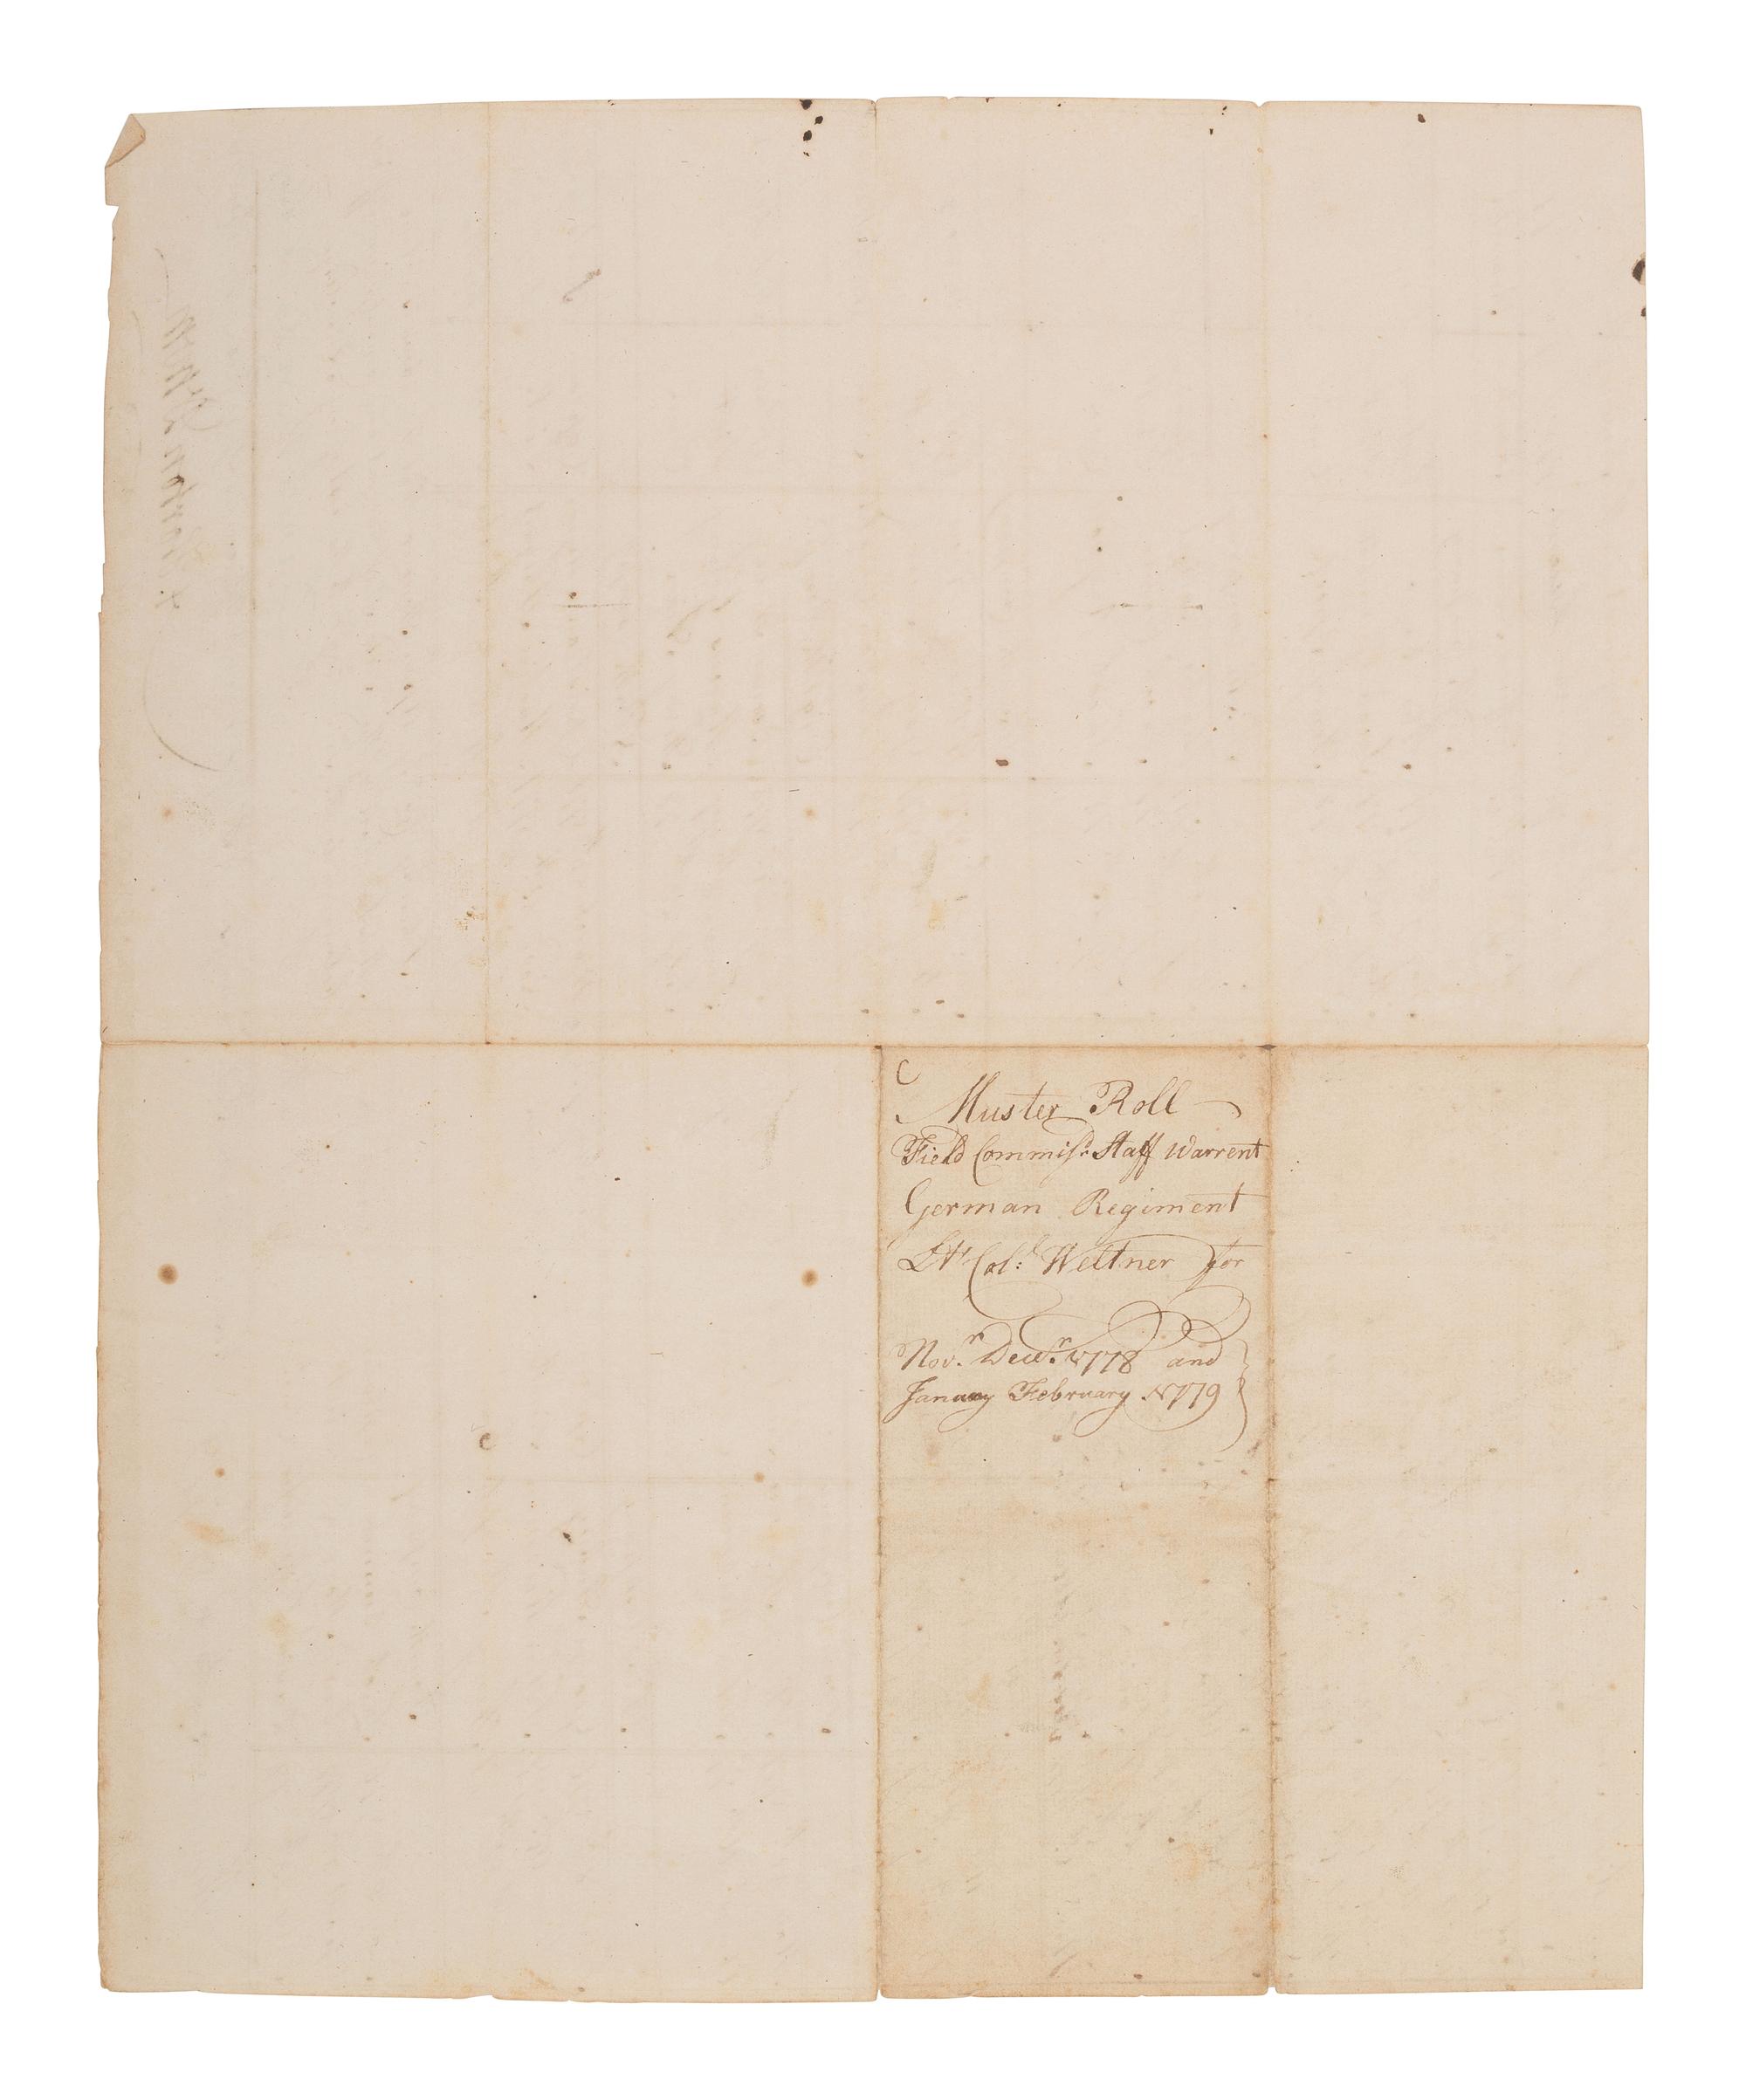 Muster Roll
Field Commiss:d Staff Warrent
German Regiment
Lt Col:l Weltner for
Nov.r Decr. 1778 and
Janauy February 1779